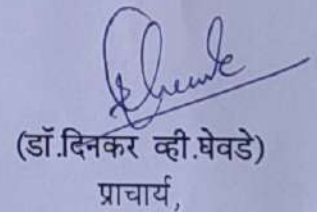 (डॉ.दिनकर व्ही.घेवडे)
प्राचार्य,